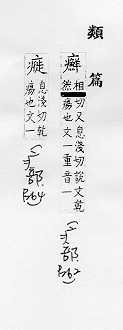 類
篇
癬
相
然
切又息淺切說文乾
瘍也文一重音一
(疒部
P.262)
瘊
息淺切乾
瘍也文一
(疒部
P.264)